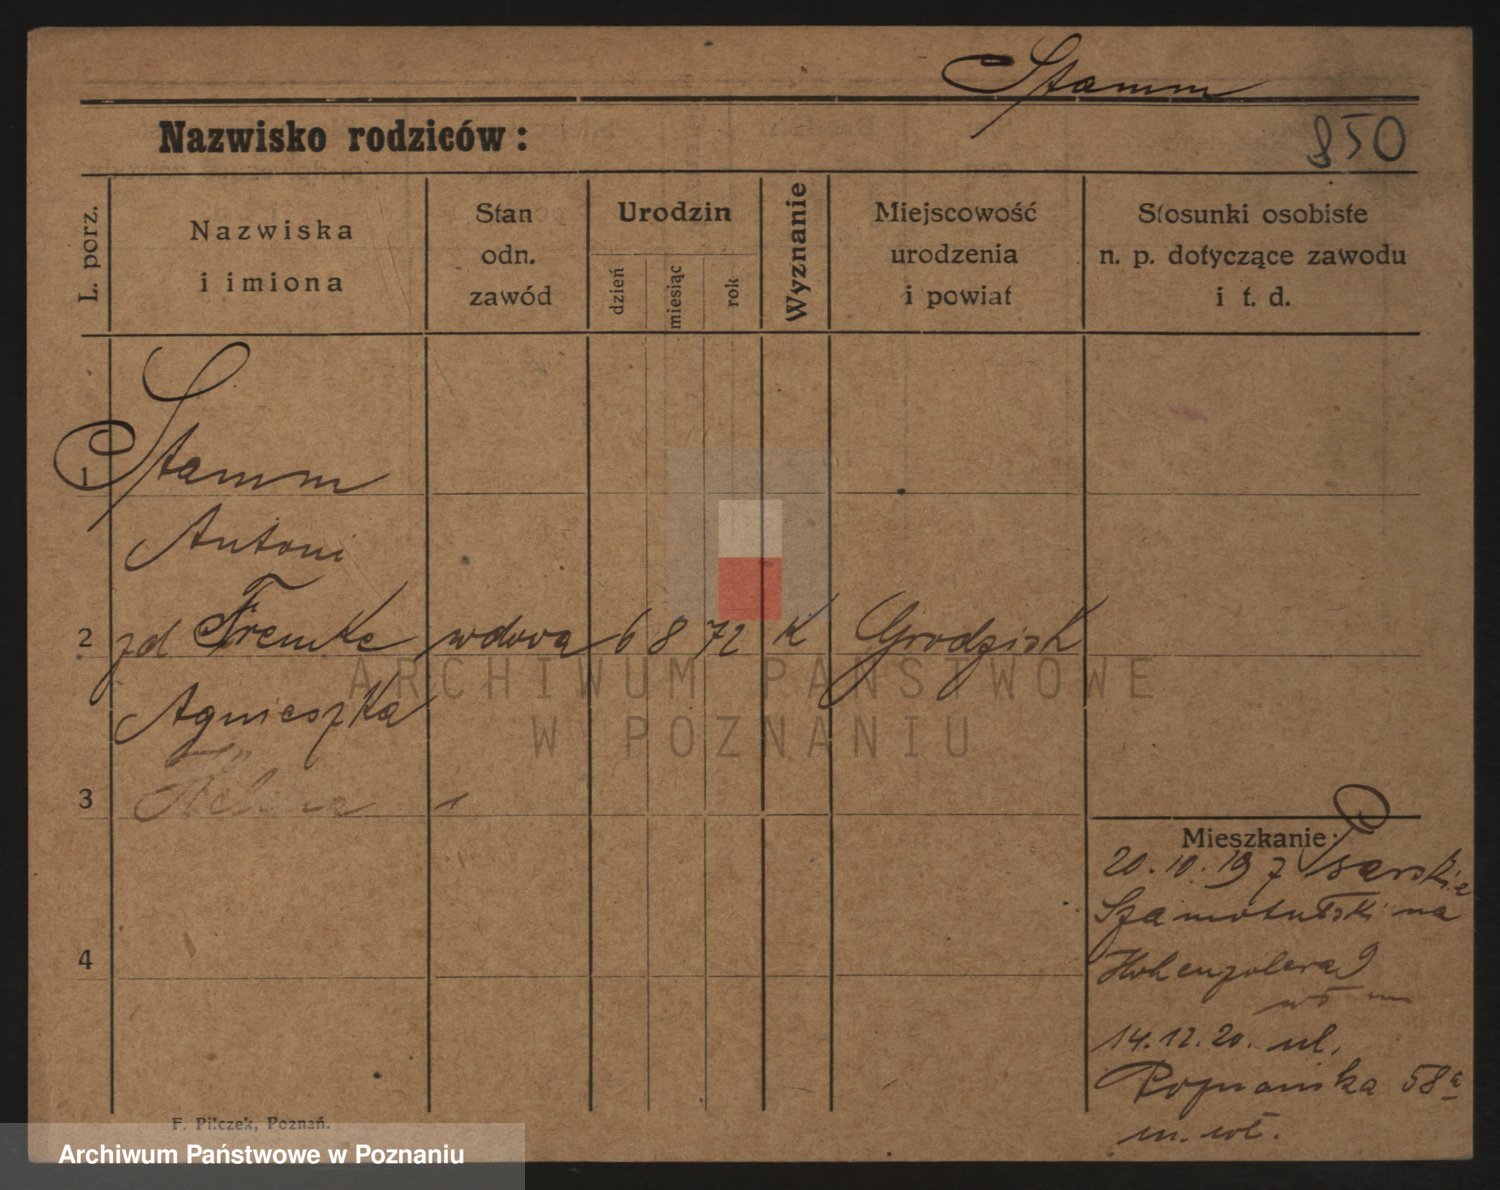 Stamm
Nazwisko rodziców:
850
L. porz.
Nazwiska
i imiona
Stan
odn.
zawód
Urodzin
dzień
miesiąc
rok
Wyznanie
Miejscowość
urodzenia
i powiat
Stosunki osobiste
n. p. dotyczące zawodu
i t. d.
1
Stamm
Antoni
2 zd Fremke wdowa 6 8 72 K Grodzisk
Agnieszka
3 Helena
4
Mieszkanie:
20.10.19 z Psarskie
Szamotulski na
Hohenzolerna 9
14.12.20. ul.
Poznanska 58a
m. wł.
F. Pilczek, Poznań.
ARCHIWUM PAŃSTWOWE
W POZNANIU
Archiwum Państwowe w Poznaniu